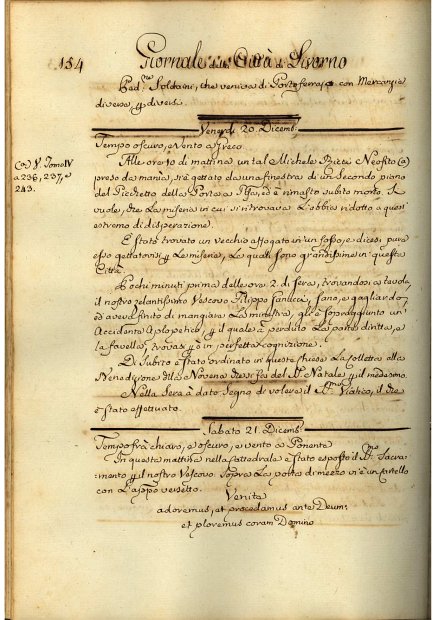 154 Giornale della Città di Livorno
Pad.ne Soldaini, che veniva da Portoferrajo con Mercanzie
diverse, p diversi.
Venerdi 20. Dicemb.
Tempo oscuro, e Vento a Greco.
Alle ore 10 di mattina un tal Michele Neofito (a)
preso da manìa, si è gettato da una finestra di un Secondo piano
del Piechetto della Porta a Pisa, ed è rimasto subito morto. Si
vuole, che La miseria in cui si ritrovava L'abbia ridotto a quest'
estremo di disperazione.
(a) V. Tomo IV
a 236, 237, e
243.
È Stato trovato un Vecchio affogato in un fosso, e dicesi pure
essersi gettatovi p Le miserie, Le quali sono grandissime in questa
Città.
Pochi minuti prima delle ore 2. di sera, trovandosi a tavola
il nostro zelantissimo Vescovo Filippo Ganucci, sano, e gagliardo,
ed aveva finito di mangiare La minestra, gli è sopraggiunto un'
Accidente Aplopetico, p il quale è perduto La parte diritta, e
la favella, trovasi p ò in perfetta cognizione.
Di Subito è Stato ordinato in queste chiese La Colletta alla
Benedizione della Novena di N. S. Natale p il medesimo.
Nella Sera à dato Segno di volere il S.mo Viatico, il che
è stato effettuato.
Sabato 21. Dicemb.
Tempo frà chiaro, e oscuro, e vento a Ponente
In questa mattina nella Cattedrale è Stato esposto il S.mo Sacra-
mento p il nostro Vescovo. Sopra La porta di mezzo vi è un cartello
con L'appo versetto.
Venite
adoremus, et procedamus ante Deum:
et ploremus coram Domino